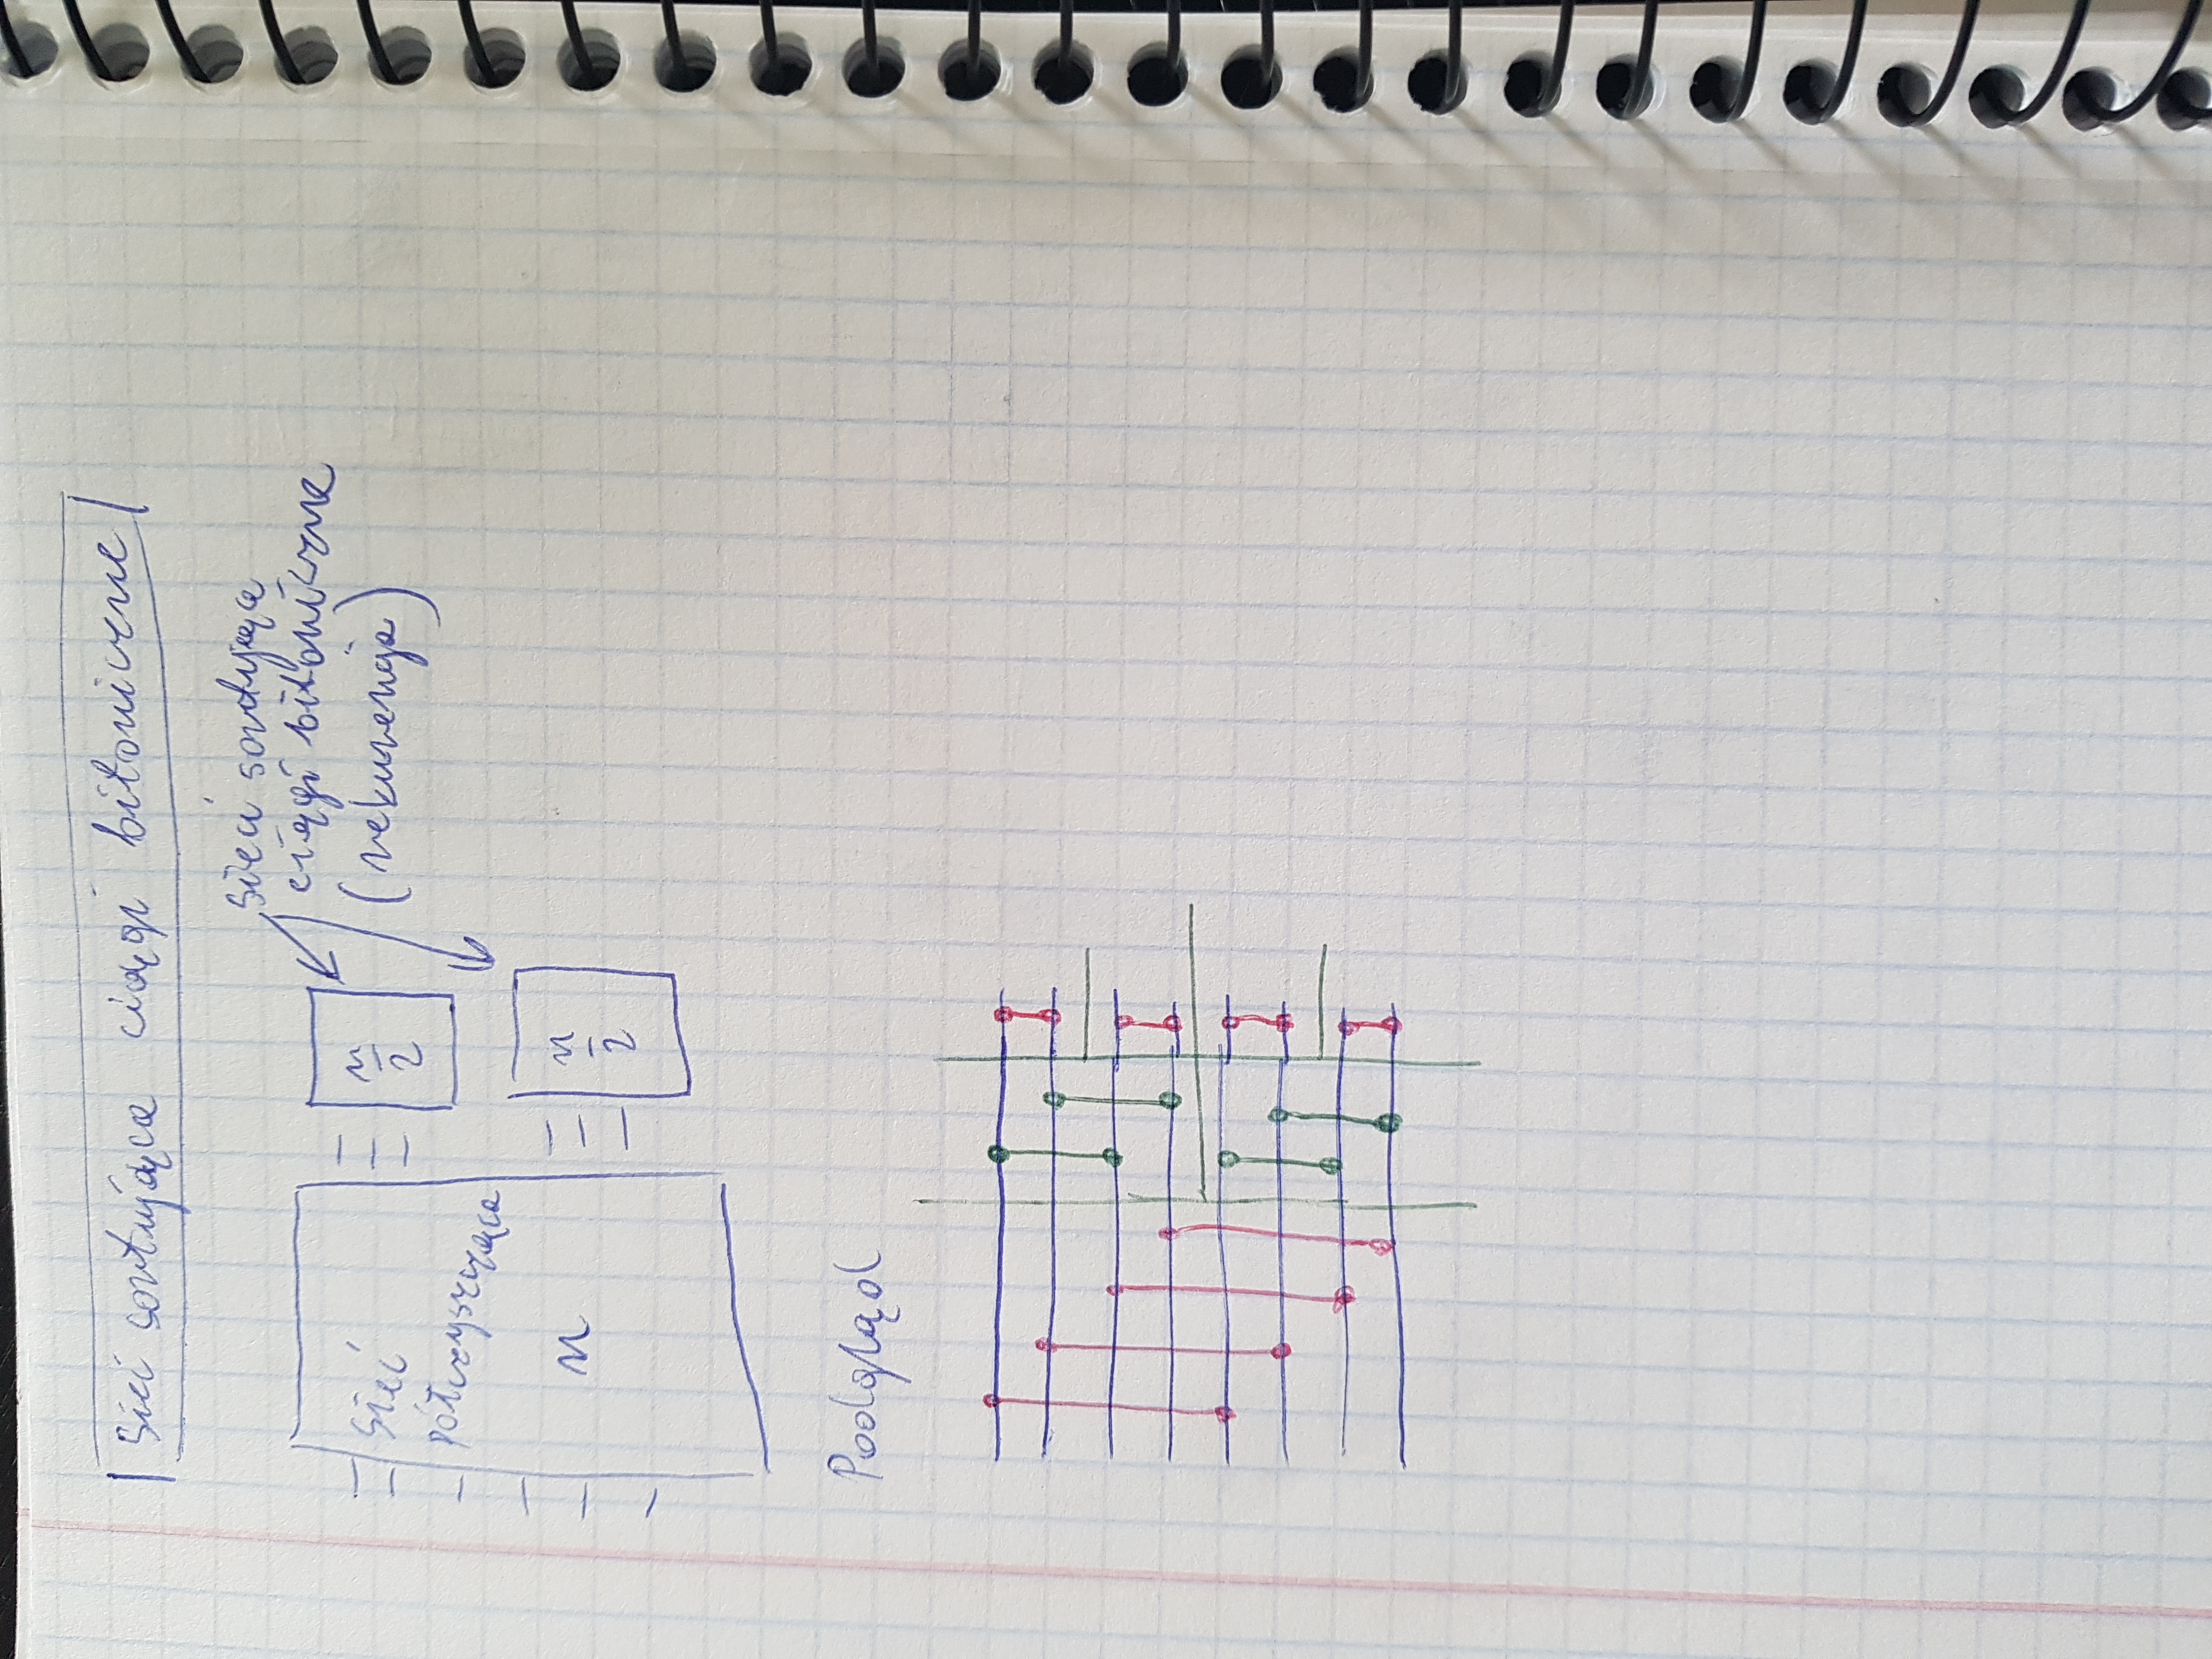 Sieci sortujące ciągi bitoniczne
Sieć
półczyszcząca
n
n/2
n/2
Sieć sortująca
ciągi bitoniczne
(rekurencja)
Podgląd